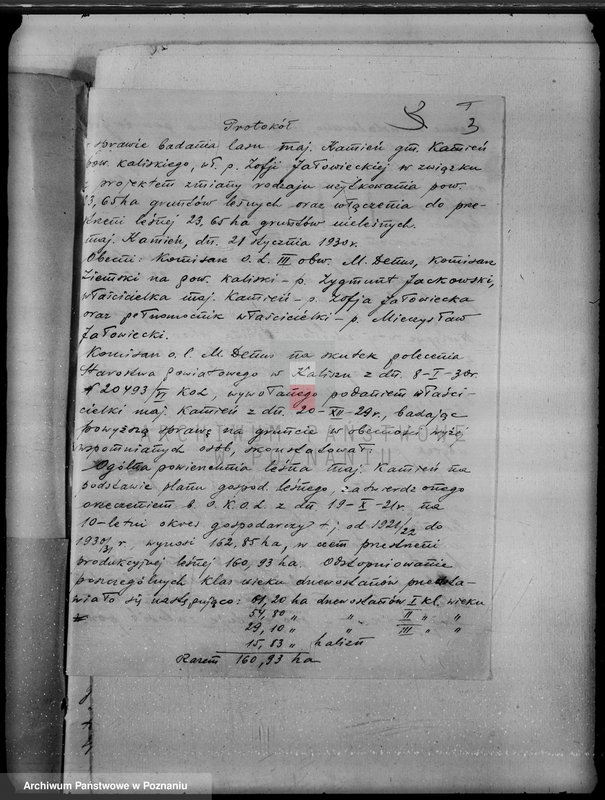 Protokół 3
w sprawie badania lasu maj. Kamień gm. Kamień
pow. kaliskiego, wł. p. Zofji Jałowieckiej w związku
z projektem zmiany rodzaju użytkowania pow.
23,65 ha gruntów leśnych oraz włączenia do prze-
strzeni leśnej 23,65 ha gruntów nieleśnych.
maj. Kamień, dn. 21 stycznia 1930 r.
Obecni: Komisarz O. L. III obw. M. Denus, Komisarz
Ziemski na pow. kaliski - p. Zygmunt Jackowski,
właścicielka maj. Kamień - p. Zofja Jałowiecka
oraz pełnomocnik właścicielki - p. Mieczysław
Jałowiecki.
Komisarz o. l. M. Denus na skutek polecenia
Starostwa powiatowego w Kaliszu z dn. 8-I-30r.
N 20493/VI KOL, wywołanego podaniem właści-
cielki maj. Kamień z dn. 20-XII-29r, badając
powyższą sprawę na gruncie w obecności wyżej
wspomnianych osób, skonstatował:
Ogólna powierzchnia leśna maj. Kamień na
podstawie planu gospod. leśnego, zatwierdzonego
orzeczeniem b. O.K.O.L. z dn. 19-X-21r. na
10-letni okres gospodarczy t. j. od 1921/22 do
1930/31 r, wynosi 162,85 ha, w czem przestrzeni
produkcyjnej leśnej 160,93 ha. Ustopniowanie
poszczególnych klas wieku drzewostanów przedsta-
wiało się następująco: 61,20 ha drzewostanów I kl. wieku
54,80 " " II " "
29,10 " " III " "
15,83 " halizn
Razem 160,93 ha
ARCHIWUM PAŃSTWOWE
W POZNANIU
Archiwum Państwowe w Poznaniu